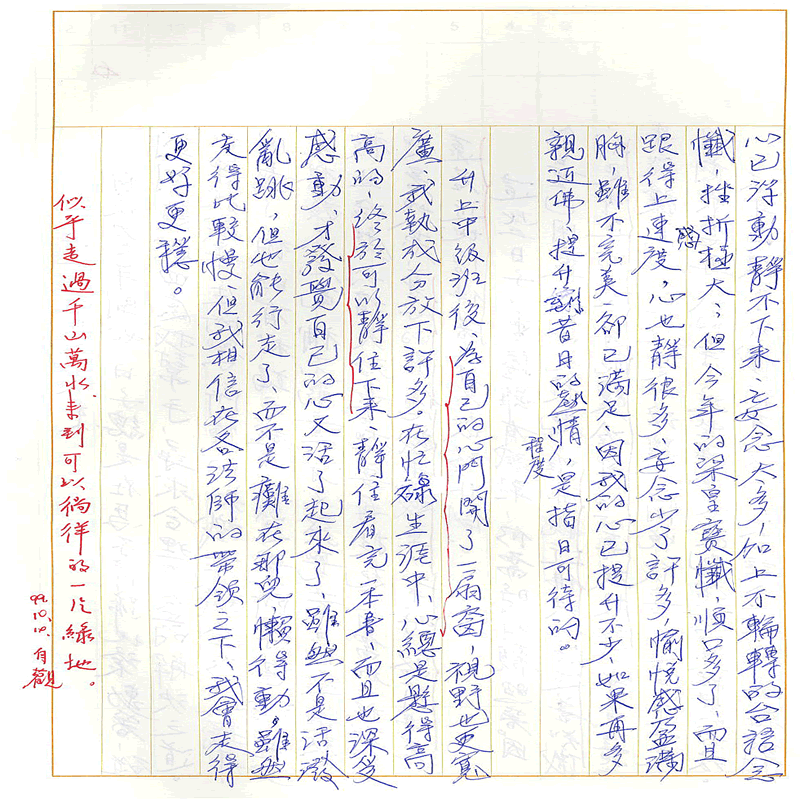 心已浮動靜不下來、妄念太多，加上不輪轉的台語念
懺，挫折極大；但今年的梁皇寶懺，順口多了，而且
跟得上速度，心也靜很多、妄念少了許多，愉悅感盈滿
感
胸，雖不完美、卻已滿足、因我的心已提升不少、如果再多
親近佛、提升昔日的情，是指日可待的。
程度
升上中級班後、為自己的心門開了一扇窗，視野也更寬
廣、我執成分放下許多。在忙碌生涯中、心總是懸得高
高的，終於可以靜住下來、靜住看完一本書，而且也深受
感動、才發覺自己的心又活了起來了，雖然不是活潑
亂跳，但也能行走了、而不是癱在那兒、懶得動。雖然
走得比較慢、但我相信在各法師的帶領之下、我會走得
更好更穩。
似乎走過千山萬水來到可以徜徉的一片綠地。
99.10.10. 自觀